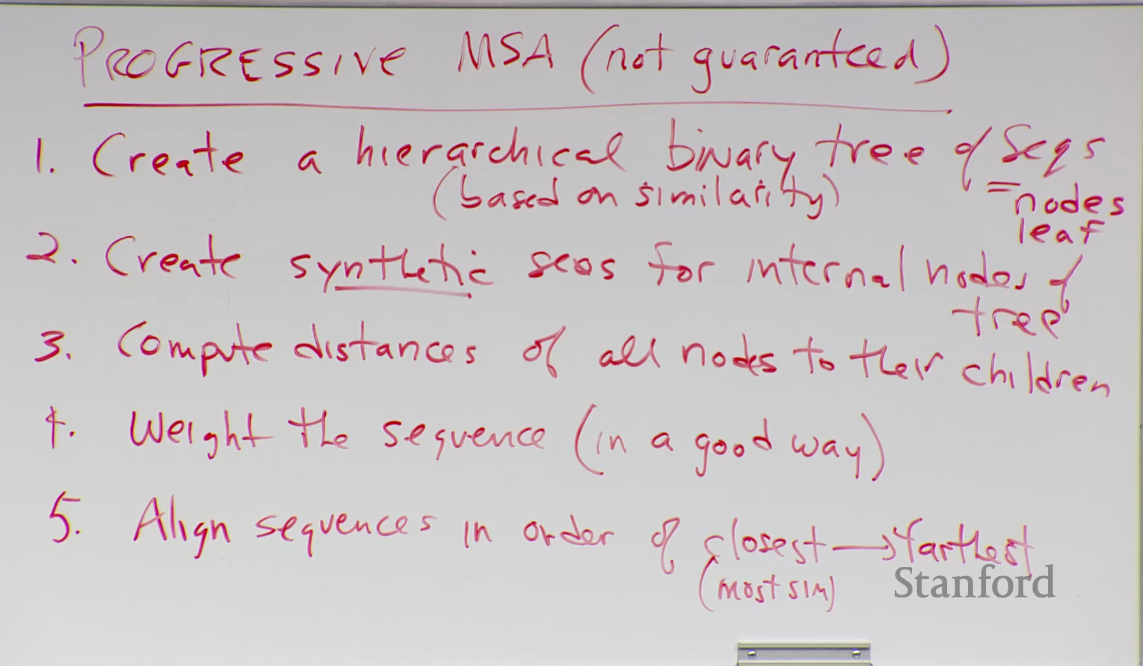 PROGRESSIVE MSA (not guaranteed)
1. Create a hierarchical binary tree of Seqs
(based on similarity) = nodes
leaf
2. Create synthetic seqs for internal nodes of
tree
3. Compute distances of all nodes to their children
4. Weight the sequence (in a good way)
5. Align sequences in order of closest → farthest
(most sim)
Stanford